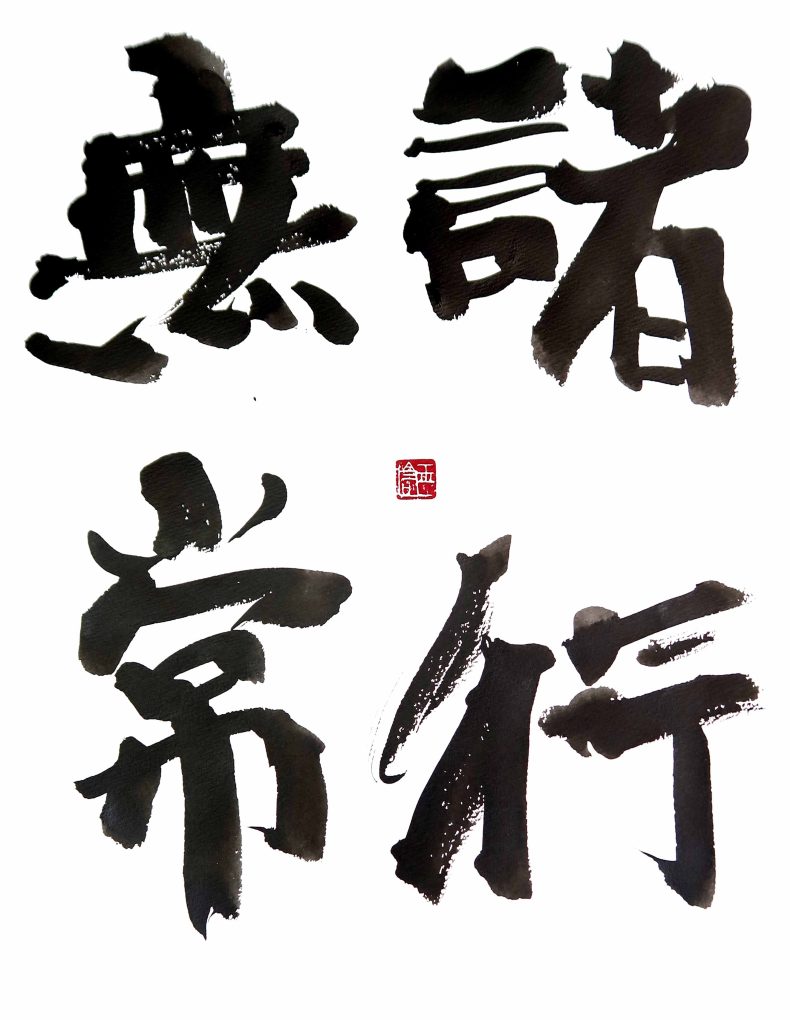 諸行
無常